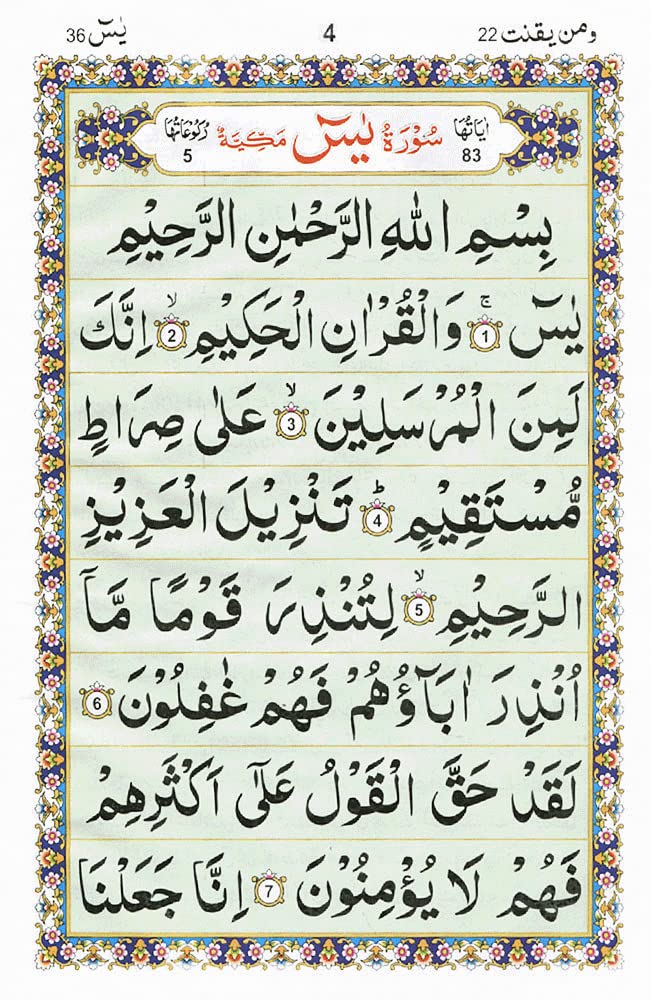 ومن يقنت 22 4 يٰسٓ 36
اٰيَاتُهَا 83 سُوْرَةُ يٰسٓ مَكِّيَّةٌ رُكُوْعَاتُهَا 5
بِسْمِ اللهِ الرَّحْمٰنِ الرَّحِيْمِ
يٰسٓ ۚ 1 وَالْقُرْاٰنِ الْحَكِيْمِ ۙ 2 اِنَّكَ
لَمِنَ الْمُرْسَلِيْنَ ۙ 3 عَلٰى صِرَاطٍ
مُّسْتَقِيْمٍ ؕ 4 تَنْزِيْلَ الْعَزِيْزِ
الرَّحِيْمِ ۙ 5 لِتُنْذِرَ قَوْمًا مَّاۤ
اُنْذِرَ اٰبَآؤُهُمْ فَهُمْ غٰفِلُوْنَ 6
لَقَدْ حَقَّ الْقَوْلُ عَلٰۤى اَكْثَرِهِمْ
فَهُمْ لَا يُؤْمِنُوْنَ 7 اِنَّا جَعَلْنَا